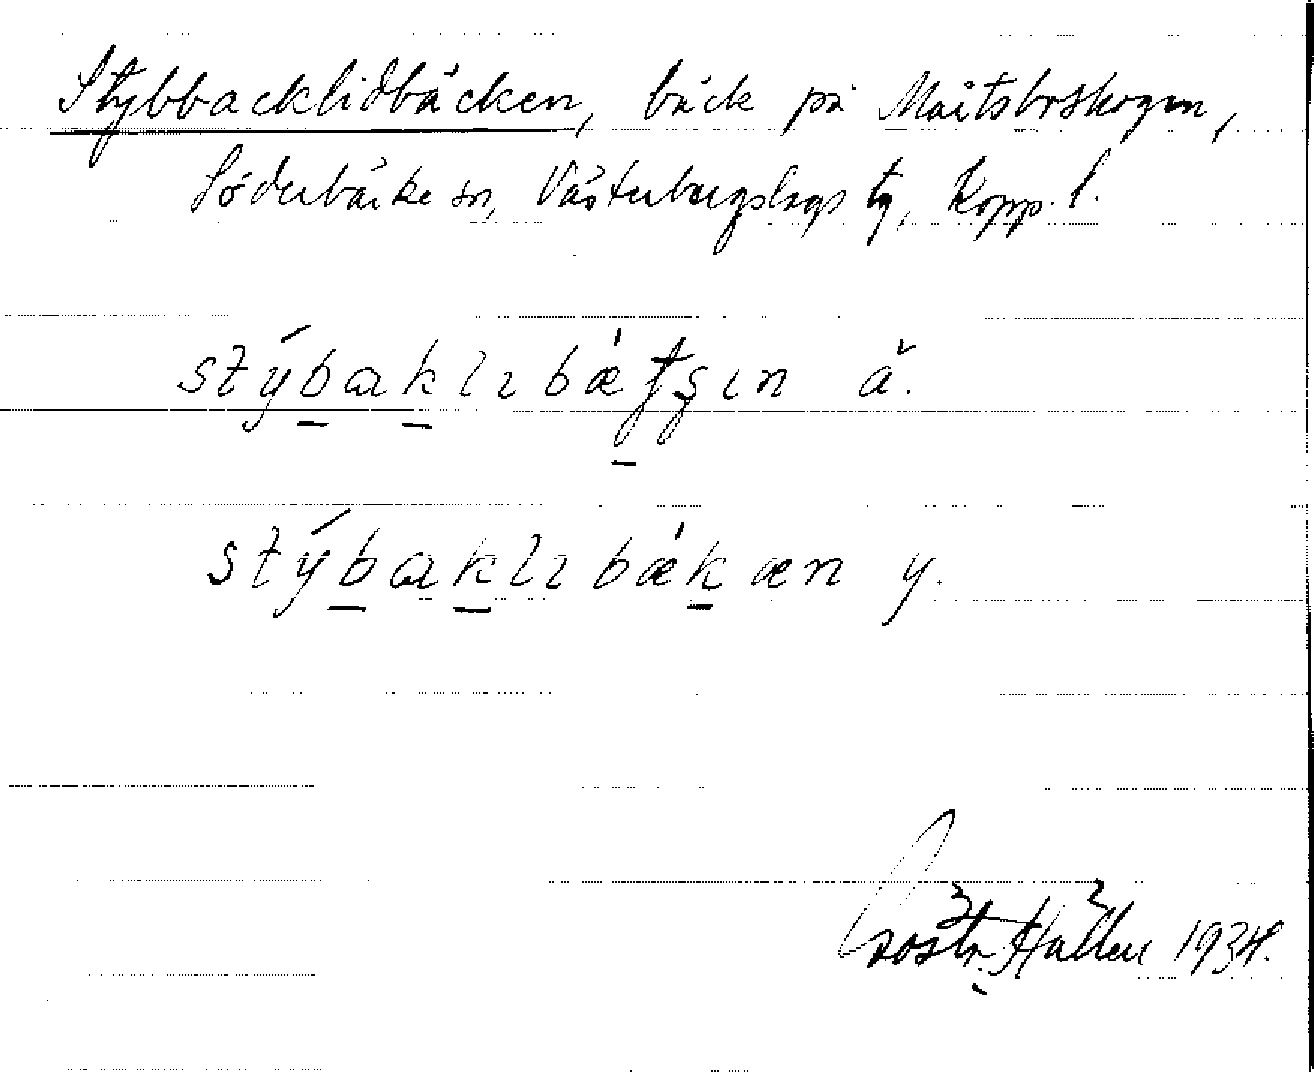 Stybbacklidbäcken, bäck på Maitsbrskogen,
Söderbärke sn, Västerbergslags tg, Kopp. l.
stýbaklıbǽʈʂın ä̌.
stýbaklıbǽkæn y.
Hallen 1934.